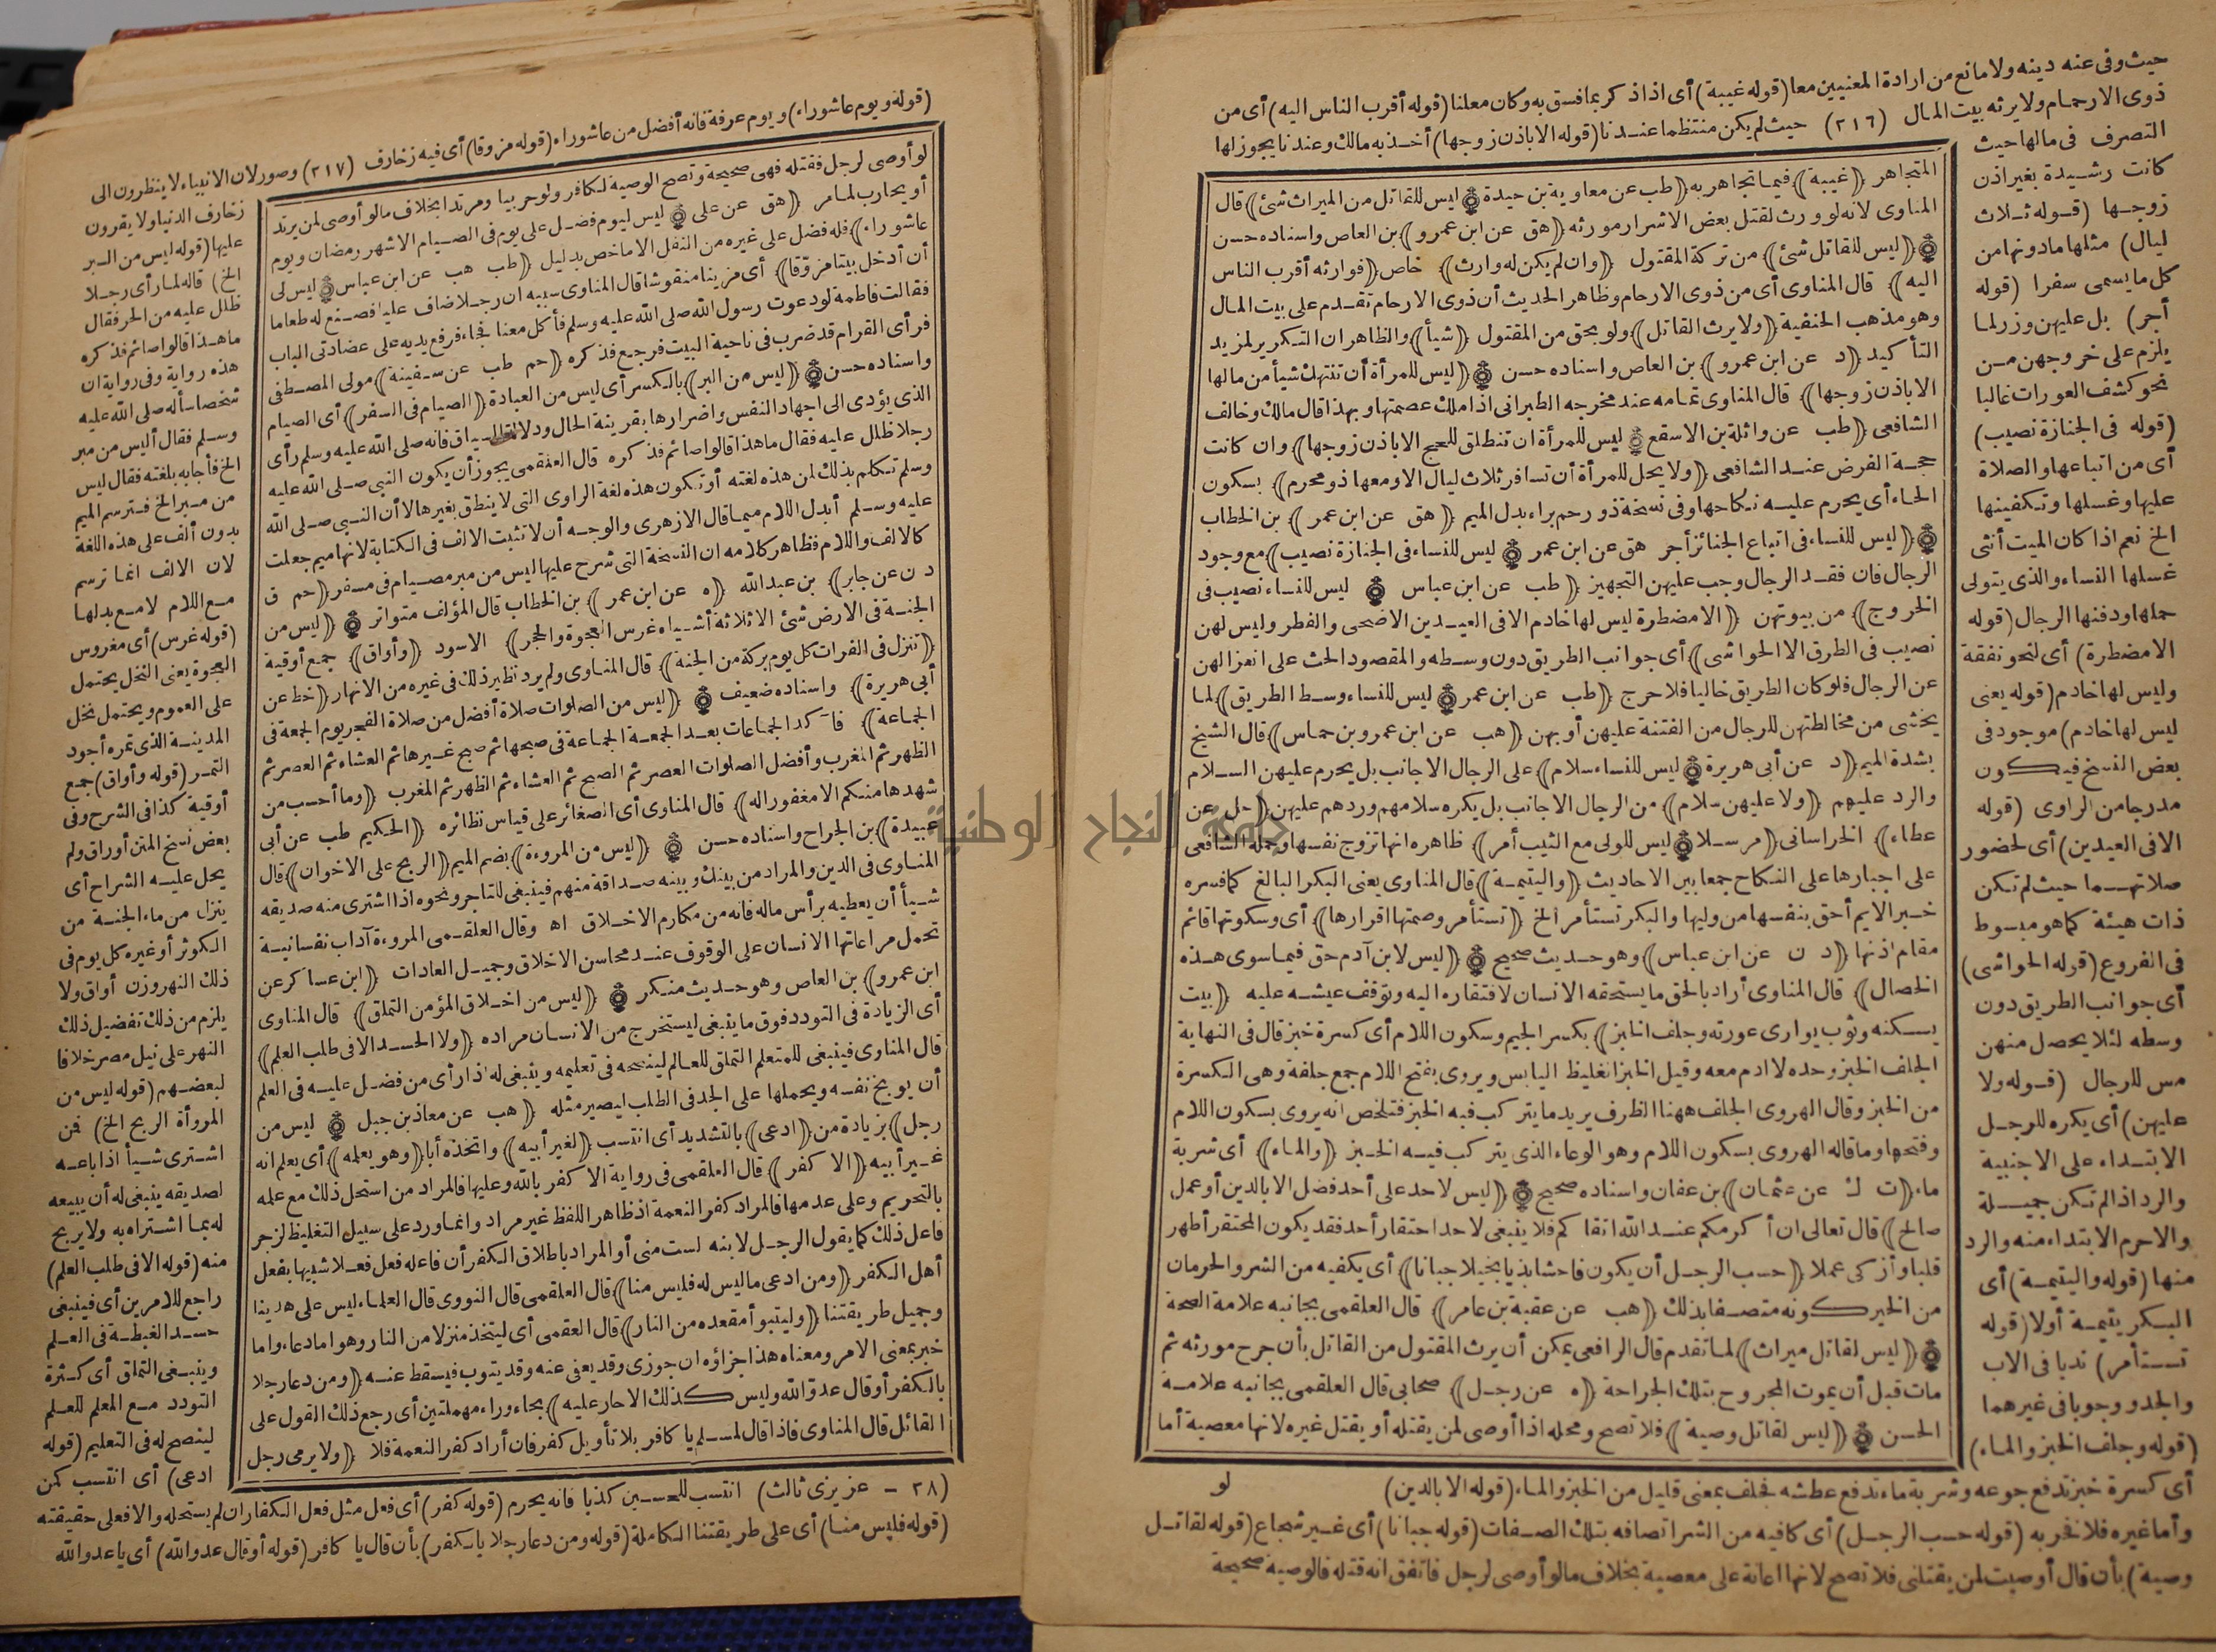 حيث وفى عنه دينه ولا مانع من ارادة المعنيين معا (قوله غيبة) أى اذا ذكر بما فسق به وكان معلنا (قوله أقرب الناس اليه) أى من
ذوى الارحام ولا يرثه بيت المال (٢١٦) حيث لم يكن منتظما عندنا (قوله الا باذن زوجها) أخذ به مالك وعندنا يجوز لها
التصرف فى مالها حيث
كانت رشيدة بغير اذن
زوجها (قوله ثلاث
ليال) مثلها ما دونها من
كل ما يسمى سفرا (قوله
أجر) بل عليهن وزر لما
يلزم على خروجهن من
نحو كشف العورات غالبا
(قوله فى الجنازة نصيب)
أى من اتباعها والصلاة
عليها وغسلها وتكفينها
الخ نعم اذا كان الميت أنثى
غسلها النساء والذى يتولى
حملها ودفنها الرجال (قوله
الا مضطرة) أى لنحو نفقة
وليس لها خادم (قوله يعنى
ليس لها خادم) موجود فى
بعض النسخ فيكون
مدرجا من الراوى (قوله
الا فى العيدين) أى لحضور
صلاتهما حيث لم تكن
ذات هيئة كما هو مبسوط
فى الفروع (قوله الحواشى)
أى جوانب الطريق دون
وسطه لئلا يحصل منهن
مس للرجال (قوله ولا
عليهن) أى يكره للرجل
الابتداء على الاجنبية
والرد اذا لم تكن جميلة
والا حرم الابتداء منه والرد
منها (قوله واليتيمة) أى
البكر يتيمة أولا (قوله
تستأمر) ندبا فى الاب
والجد ووجوبا فى غيرهما
(قوله وجلف الخبز والماء)
المتجاهر ﴿غيبة﴾ فيما تجاهر به ﴿طب عن معاوية بن حيدة ليس للقاتل من الميراث شئ﴾ قال
المناوى لانه لو ورث لقتل بعض الاشرار مورثه ﴿هق عن ابن عمرو﴾ بن العاص واسناده حسن
﴿ليس للقاتل شئ﴾ من تركة المقتول ﴿وان لم يكن له وارث﴾ خاص ﴿فوارثه أقرب الناس
اليه﴾ قال المناوى أى من ذوى الارحام وظاهر الحديث أن ذوى الارحام تقدم على بيت المال
وهو مذهب الحنفية ﴿ولا يرث القاتل﴾ ولو بحق من المقتول ﴿شيأ﴾ والظاهر ان التكرير لمزيد
التأكيد ﴿د عن ابن عمرو﴾ بن العاص واسناده حسن ﴿ليس للمرأة أن تنتهك شيأ من مالها
الا باذن زوجها﴾ قال المناوى تمامه عند مخرجه الطبرانى اذا ملك عصمتها وبهذا قال مالك وخالف
الشافعى ﴿طب عن واثلة بن الاسقع ليس للمرأة ان تنطلق للحج الا باذن زوجها﴾ وان كانت
حجة الفرض عند الشافعى ﴿ولا يحل للمرأة أن تسافر ثلاث ليال الا ومعها ذو محرم﴾ بسكون
الحاء أى يحرم عليه نكاحها وفى نسخة ذو رحم براء بدل الميم ﴿هق عن ابن عمر﴾ بن الخطاب
﴿ليس للنساء فى اتباع الجنائز أجر هق عن ابن عمر ليس للنساء فى الجنازة نصيب﴾ مع وجود
الرجال فان فقد الرجال وجب عليهن التجهيز ﴿طب عن ابن عباس ليس للنساء نصيب فى
الخروج﴾ من بيوتهن ﴿الا مضطرة ليس لها خادم الا فى العيدين الاضحى والفطر وليس لهن
نصيب فى الطرق الا الحواشى﴾ أى جوانب الطريق دون وسطه والمقصود الحث على انعزالهن
عن الرجال فلو كان الطريق خاليا فلا حرج ﴿طب عن ابن عمر ليس للنساء وسط الطريق﴾ لما
يخشى من مخالطتهن للرجال من الفتنة عليهن أو بهن ﴿هب عن ابن عمرو بن حماس﴾ قال الشيخ
بشدة الميم ﴿د عن أبى هريرة ليس للنساء سلام﴾ على الرجال الاجانب بل يحرم عليهن السلام
والرد عليهم ﴿ولا عليهن سلام﴾ من الرجال الاجانب بل يكره سلامهم وردهم عليهن ﴿حل عن
عطاء﴾ الخراسانى ﴿مرسلا ليس للولى مع الثيب أمر﴾ ظاهره انها تزوج نفسها وحمله الشافعى
على اجبارها على النكاح جمعا بين الاحاديث ﴿واليتيمة﴾ قال المناوى يعنى البكر البالغ كما فسره
خبر الايم أحق بنفسها من وليها والبكر تستأمر الخ ﴿تستأمر وصمتها اقرارها﴾ أى وسكوتها قائم
مقام اذنها ﴿د ن عن ابن عباس﴾ وهو حديث صحيح ﴿ليس لابن آدم حق فيما سوى هذه
الخصال﴾ قال المناوى أراد بالحق ما يستحقه الانسان لافتقاره اليه وتوقف عيشه عليه ﴿بيت
يسكنه وثوب يوارى عورته وجلف الخبز﴾ بكسر الجيم وسكون اللام أى كسرة خبز قال فى النهاية
الجلف الخبز وحده لا ادم معه وقيل الخبز الغليظ اليابس ويروى بفتح اللام جمع جلفة وهى الكسرة
من الخبز وقال الهروى الجلف ههنا الظرف يريد ما يتركب فيه الخبز فتلخص انه يروى بسكون اللام
وفتحها وما قاله الهروى بسكون اللام وهو الوعاء الذى يتركب فيه الخبز ﴿والماء﴾ أى شربة
ماء ﴿ت ك عن عثمان﴾ بن عفان واسناده صحيح ﴿ليس لاحد على أحد فضل الا بالدين أو عمل
صالح﴾ قال تعالى ان أكرمكم عند الله اتقاكم فلا ينبغى لاحد احتقار أحد فقد يكون المحتقر أطهر
قلبا وأزكى عملا ﴿حسب الرجل أن يكون فاحشا بذيا بخيلا جبانا﴾ أى يكفيه من الشر والحرمان
من الخير كونه متصفا بذلك ﴿هب عن عقبة بن عامر﴾ قال العلقمى بجانبه علامة الصحة
﴿ليس لقاتل ميراث﴾ لما تقدم قال الرافعى يمكن أن يرث المقتول من القاتل بأن جرح مورثه ثم
مات قبل أن يموت المجروح بتلك الجراحة ﴿ه عن رجل﴾ صحابى قال العلقمى بجانبه علامة
الحسن ﴿ليس لقاتل وصية﴾ فلا تصح ومحله اذا أوصى لمن يقتله أو يقتل غيره لانها معصية أما
لو
أى كسرة خبز تدفع جوعه وشربة ماء تدفع عطشه فجلف بمعنى قليل من الخبز والماء (قوله الا بالدين)
وأما غيره فلا نفخر به (قوله حسب الرجل) أى كافيه من الشر اتصافه بتلك الصفات (قوله جبانا) أى غير شجاع (قوله لقاتل
وصية) بأن قال أوصيت لمن يقتلنى فلا تصح لانها اعانة على معصية بخلاف ما لو أوصى لرجل فاتفق انه قتله فالوصية صحيحة
(قوله ويوم عاشوراء) ويوم عرفة فانه أفضل من عاشوراء (قوله مزوقا) أى فيه زخارف (٢١٧) وصور لان الانبياء لا ينظرون الى
زخارف الدنيا ولا يقرون
عليها (قوله ليس من البر
الخ) قاله لما رأى رجلا
ظلل عليه من الحر فقال
ما هذا قالوا صائم فذكره
هذه رواية وفى رواية ان
شخصا سأله صلى الله عليه
وسلم فقال أليس من مبر
الخ فأجابه بلغته فقال ليس
من مبر الخ فترسم الميم
بدون ألف على هذه اللغة
لان الالف انما ترسم
مع اللام لا مع بدلها
(قوله غرس) أى مغروس
العجوة يعنى النخل يحتمل
على العموم ويحتمل نخل
المدينة الذى تمره أجود
التمر (قوله وأواق) جمع
أوقية كذا فى الشرح وفى
بعض نسخ المتن أوراق ولم
يحل عليه الشراح أى
ينزل من ماء الجنة من
الكوثر أو غيره كل يوم فى
ذلك النهر وزن أواق ولا
يلزم من ذلك تفضيل ذلك
النهر على نيل مصر خلافا
لبعضهم (قوله ليس من
المروأة الربح الخ) فمن
اشترى شيأ اذا باعه
لصديقه ينبغى له أن يبيعه
له بما اشتراه به ولا يربح
منه (قوله الا فى طلب العلم)
راجع للامرين أى فينبغى
حسد الغبطة فى العلم
وينبغى التملق أى كثرة
التودد مع المعلم للعلم
لينصح له فى التعليم (قوله
ادعى) أى انتسب كمن
لو أوصى لرجل فقتله فهى صحيحة وتصح الوصية لكافر ولو حربيا ومرتدا بخلاف ما لو أوصى لمن يرتد
أو يحارب لما مر ﴿هق عن على ليس ليوم فضل على يوم فى الصيام الا شهر رمضان ويوم
عاشوراء﴾ فله فضل على غيره من النفل الا ما خص بدليل ﴿طب هب عن ابن عباس ليس لى
أن أدخل بيتا مزوّقا﴾ أى مزينا منقوشا قال المناوى سببه ان رجلا ضاف عليا فصنع له طعاما
فقالت فاطمة لو دعوت رسول الله صلى الله عليه وسلم فأكل معنا فجاء فرفع يديه على عضادتى الباب
فرأى القرام قد ضرب فى ناحية البيت فرجع فذكره ﴿حم طب عن سفينة﴾ مولى المصطفى
واسناده حسن ﴿ليس من البر﴾ بالكسر أى ليس من العبادة ﴿الصيام فى السفر﴾ أى الصيام
الذى يؤدى الى اجهاد النفس واضرارها بقرينة الحال ودلالة السياق فانه صلى الله عليه وسلم رأى
رجلا ظلل عليه فقال ما هذا قالوا صائم فذكره قال العلقمى يجوز أن يكون النبى صلى الله عليه
وسلم تكلم بذلك لمن هذه لغته أو تكون هذه لغة الراوى التى لا ينطق بغيرها لا أن النبى صلى الله
عليه وسلم أبدل اللام ميما قال الازهرى والوجه أن لا تثبت الالف فى الكتابة لانها ميم جعلت
كالالف واللام فظاهر كلامه ان النسخة التى شرح عليها ليس من مبر مصيام فى مسفر ﴿حم ق
د ن عن جابر﴾ بن عبد الله ﴿ه عن ابن عمر﴾ بن الخطاب قال المؤلف متواتر ﴿ليس من
الجنة فى الارض شئ الا ثلاثة أشياء غرس العجوة والحجر﴾ الاسود ﴿وأواق﴾ جمع أوقية
﴿تنزل فى الفرات كل يوم بركة من الجنة﴾ قال المناوى ولم يرد نظير ذلك فى غيره من الانهار ﴿خط عن
أبى هريرة﴾ واسناده ضعيف ﴿ليس من الصلوات صلاة أفضل من صلاة الفجر يوم الجمعة فى
الجماعة﴾ فآكد الجماعات بعد الجمعة الجماعة فى صبحها ثم صبح غيرها ثم العشاء ثم العصر ثم
الظهر ثم المغرب وأفضل الصلوات العصر ثم الصبح ثم العشاء ثم الظهر ثم المغرب ﴿وما أحسب من
شهدها منكم الا مغفورا له﴾ قال المناوى أى الصغائر على قياس نظائره ﴿الحكيم طب عن أبى
عبيدة﴾ بن الجراح واسناده حسن ﴿ليس من المروءة﴾ بضم الميم ﴿الربح على الاخوان﴾ قال
المناوى فى الدين والمراد من بينك وبينه صداقة منهم فينبغى للتاجر ونحوه اذا اشترى منه صديقه
شيأ أن يعطيه برأس ماله فانه من مكارم الاخلاق اه وقال العلقمى المروءة آداب نفسانية
تحمل مراعاتها الانسان على الوقوف عند محاسن الاخلاق وجميل العادات ﴿ابن عساكر عن
ابن عمرو﴾ بن العاص وهو حديث منكر ﴿ليس من اخلاق المؤمن التملق﴾ قال المناوى
أى الزيادة فى التودد فوق ما ينبغى ليستخرج من الانسان مراده ﴿ولا الحسد الا فى طلب العلم﴾
قال المناوى فينبغى للمتعلم التملق للعالم لينصحه فى تعليمه وينبغى له اذا رأى من فضل عليه فى العلم
أن يوبخ نفسه ويحملها على الجد فى الطلب ليصير مثله ﴿هب عن معاذ بن جبل ليس من
رجل﴾ بزيادة من ﴿ادعى﴾ بالتشديد أى انتسب ﴿لغير أبيه﴾ واتخذه أبا ﴿وهو يعلمه﴾ أى يعلم انه
غير أبيه ﴿الا كفر﴾ قال العلقمى فى رواية الا كفر بالله وعليها فالمراد من استحل ذلك مع علمه
بالتحريم وعلى عدمها فالمراد كفر النعمة اذ ظاهر اللفظ غير مراد وانما ورد على سبيل التغليظ لزجر
فاعل ذلك كما يقول الرجل لابنه لست منى أو المراد باطلاق الكفر أن فاعله فعل فعلا شبيها بفعل
أهل الكفر ﴿ومن ادعى ما ليس له فليس منا﴾ قال العلقمى قال النووى قال العلماء ليس على هدينا
وجميل طريقتنا ﴿وليتبوأ مقعده من النار﴾ قال العقمى أى ليتخذ منزلا من النار وهو اما دعاء واما
خبر بمعنى الامر ومعناه هذا جزاؤه ان جوزى وقد يعفى عنه وقد يتوب فيسقط عنه ﴿ومن دعا رجلا
بالكفر أو قال عدوّ الله وليس كذلك الا حار عليه﴾ بحاء وراء مهملتين أى رجع ذلك القول على
القائل قال المناوى فاذا قال لمسلم يا كافر بلا تأويل كفر فان أراد كفر النعمة فلا ﴿ولا يرمى رجل
(٢٨ - عزيزى ثالث) انتسب للحسين كذبا فانه يحرم (قوله كفر) أى فعل مثل فعل الكفار ان لم يستحله والا فعلى حقيقته
(قوله فليس منا) أى على طريقتنا الكاملة (قوله ومن دعا رجلا بالكفر) بأن قال يا كافر (قوله أو قال عدو الله) أى يا عدو الله
جامعة النجاح الوطنية